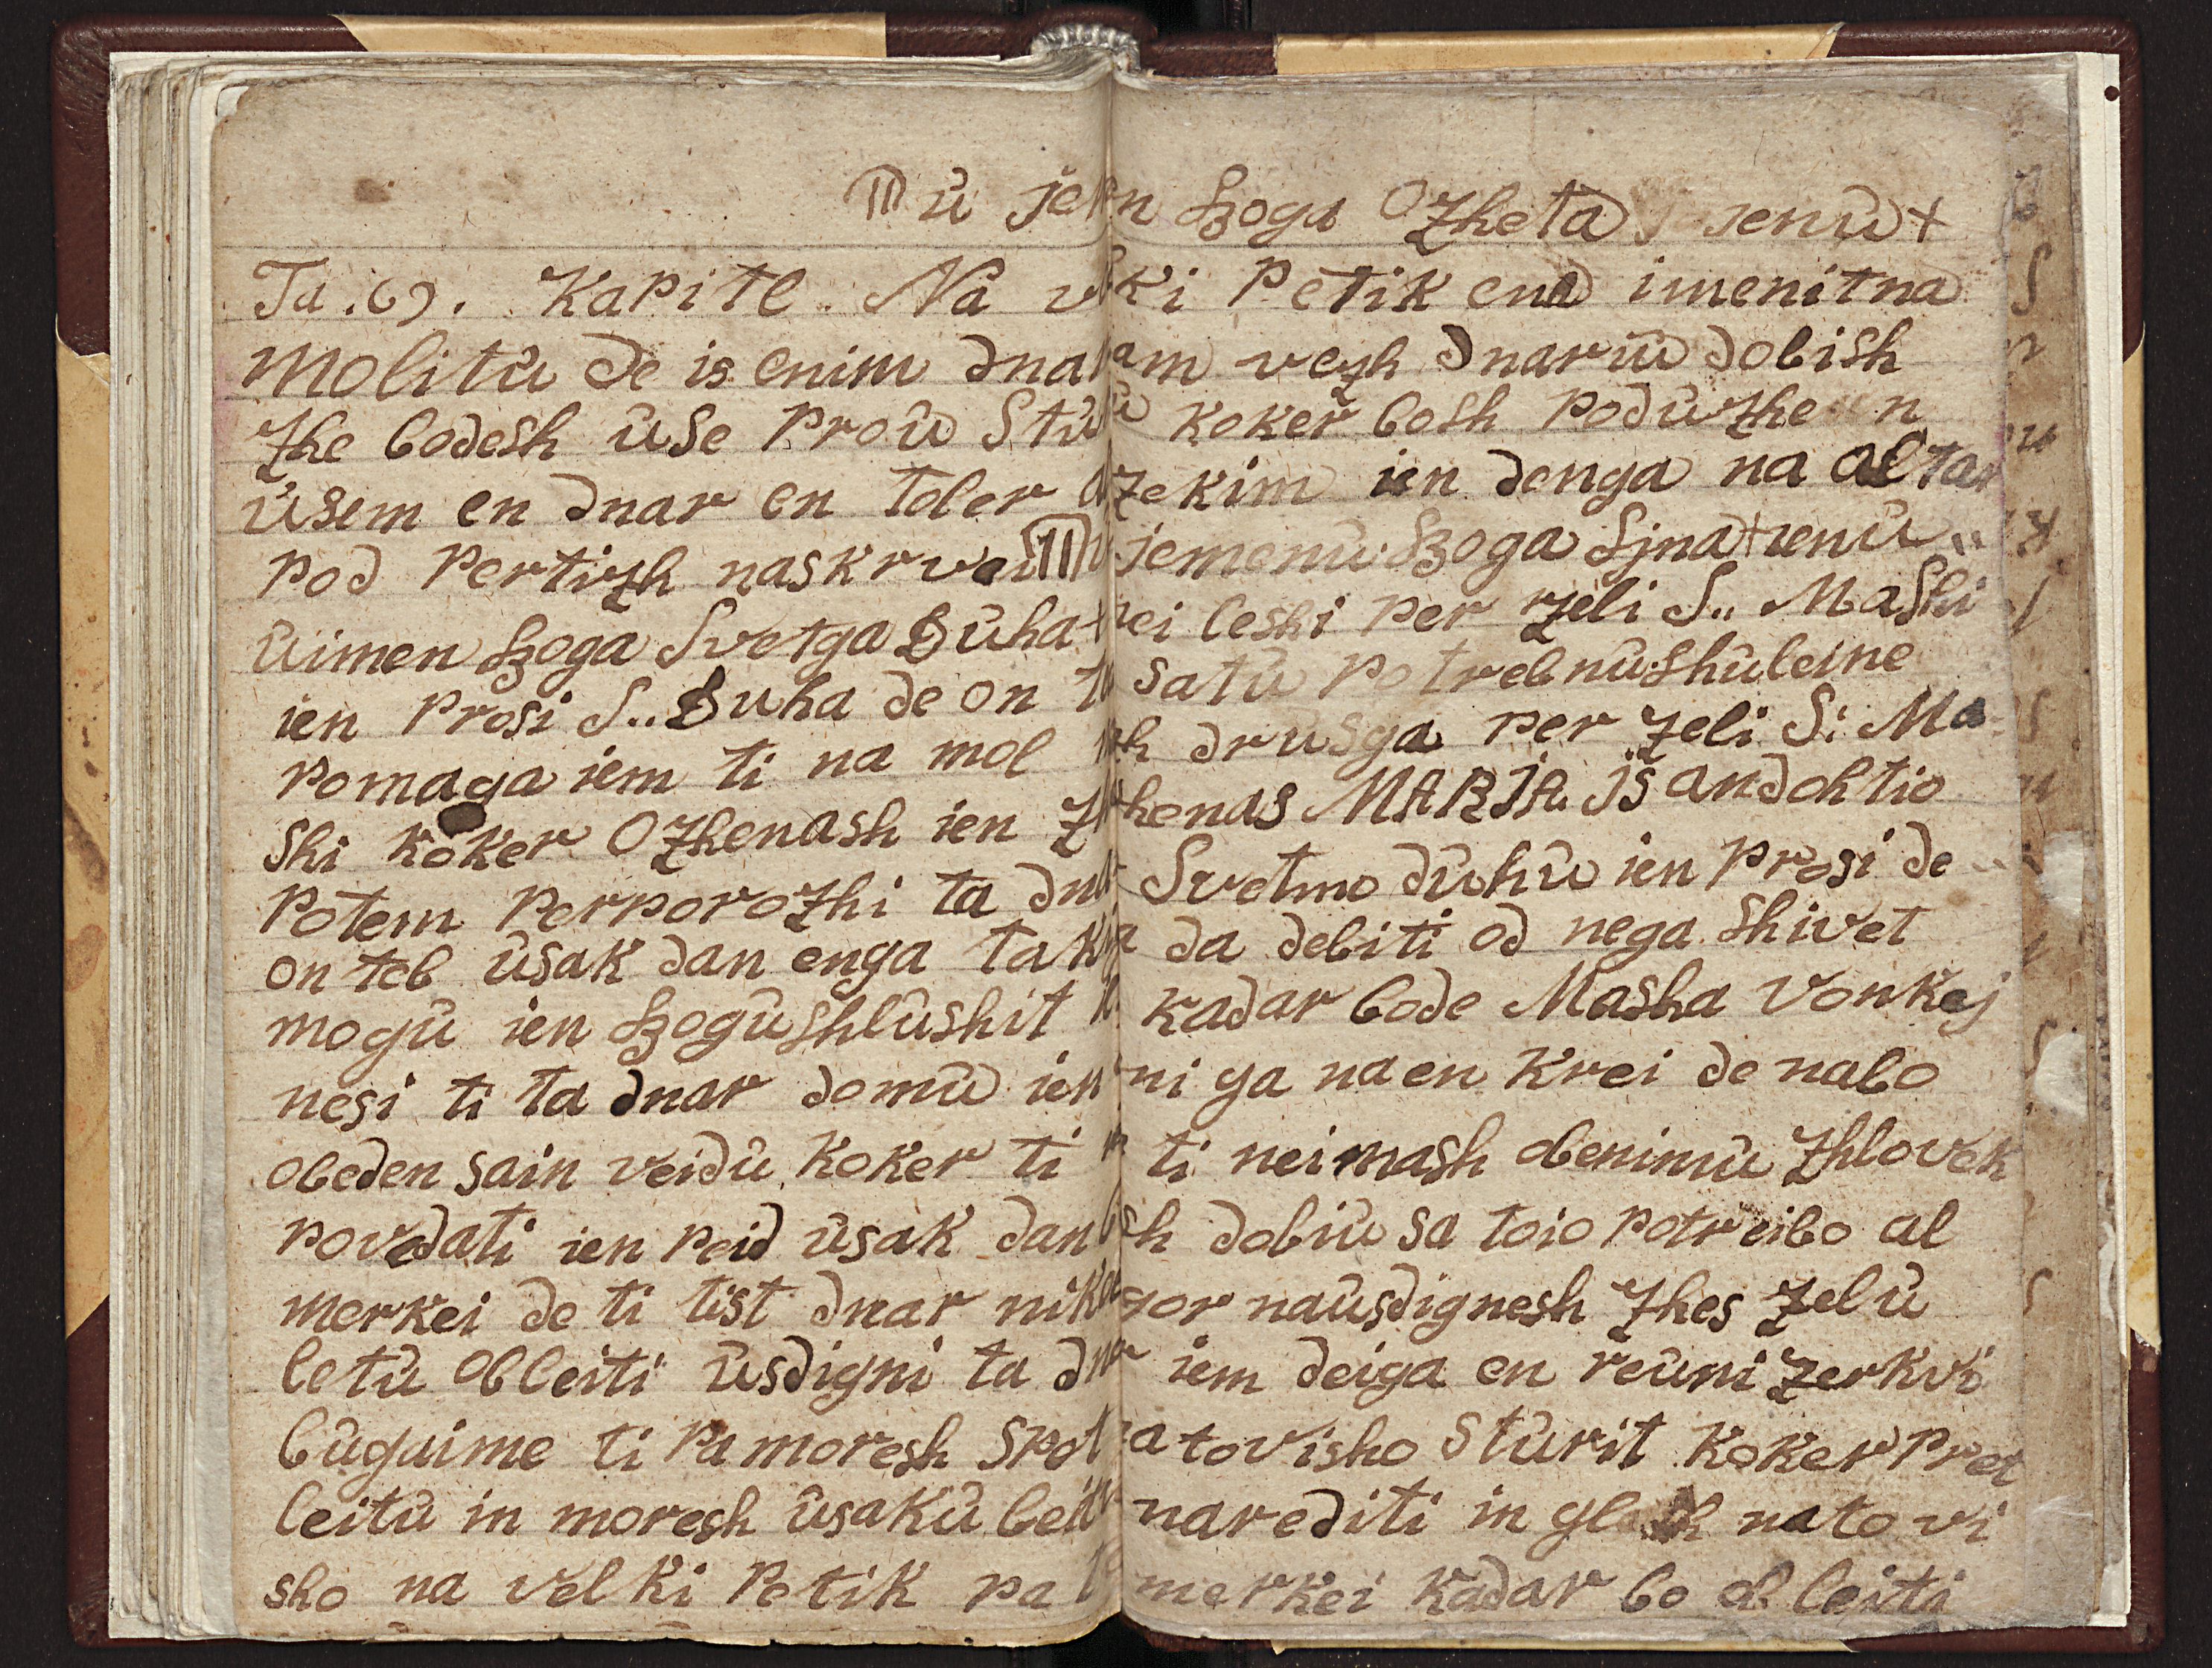 ů jemen Bzoga Ozheta jenů +
Ta .6). Kapitl. Na velki Petik ena imenitna
Molitů de is enim dnaram vezh dnarů dobish
Zhe bodesh ůse proů Stůrů koker bosh podůzhen
ůsem en dnar en toler azekim ien denga na altar
pod Pertizh naskrvei ů jemenů Bzoga Sjna + ienů
ůimen Bzoga Svetga Důha + leshi per zeli S.. Mashi
ien prosi S.. Duha de on te satů potrebnůshůleine
pomaga iem ti na mol drůsga per zeli S: Ma-
shi koker Ozhenash ien Zhenas MARJA js andohtio
potem perporozhi ta dnar Svetmo důhů ien prosi de
on teb ůsak dan enga taka da debiti od nega shivet
mogů ien Bzogůshlůshit ie kadar bode Masha vonkej
nesi ti ta dnar domů ien ni ga na en krei de nabo
obeden sain veidů koker ti ti neimash obenimů Zhlovek
povedati ien peid ůsak dan bosh dobiů sa toio potreibo al
merkei de ti tist dnar nikar gor naůsdignesh Zhes Zelů
letů obleiti ůsdigni ta dnar iem deiga en reůni Zerkvi
bůgaime ti pa moresh spet na tovisho stůrit koker pret
leitů in moresh ůsaků leitů narediti in na tovi
sho na velki Petik pa te merkei kadar bo ob leiti